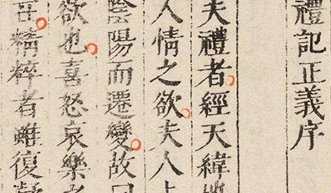 禮記正義序
夫禮者經天緯地
人情之欲夫人上
陰陽而遷變故曰
欲也喜怒哀樂之
精粹者雖復凝